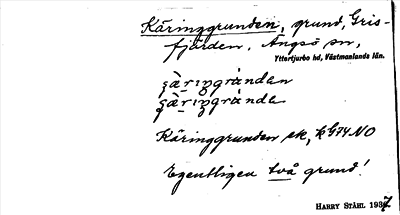 Käringgrunden, grund, Gris-
fjärden, Ängsö sn,
Yttertjurbo hd, Västmanlands län.
Käringgrunden ek, k G74 NO
Egentligen två grund!
HARRY STÅHL 1937.